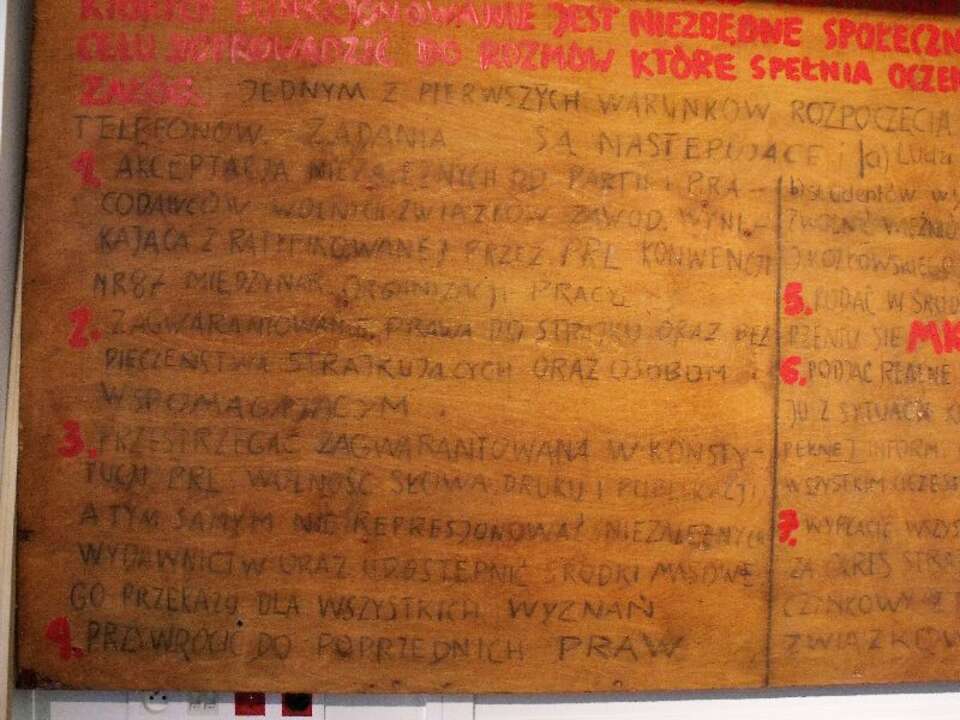 KTÓRYCH FUNKCJONOWANIE JEST NIEZBĘDNE SPOŁECZN
CELU DOPROWADZIĆ DO ROZMÓW KTÓRE SPEŁNIA OCZEK
ZAŁÓG. JEDNYM Z PIERWSZYCH WARUNKÓW ROZPOCZĘCIA
TELEFONÓW. ŻĄDANIA SĄ NASTĘPUJĄCE:
1. AKCEPTACJA NIEZALEŻNYCH OD PARTII I PRA-
CODAWCÓW WOLNYCH ZWIĄZKÓW ZAWOD. WYNI-
KAJĄCA Z RATYFIKOWANEJ PRZEZ PRL KONWENCJI
NR 87 MIĘDZYNAR. ORGANIZACJI PRACY
2. ZAGWARANTOWANIE PRAWA DO STRAJKU ORAZ BEZ
PIECZEŃSTWA STRAJKUJĄCYCH ORAZ OSOBOM
WSPOMAGAJĄCYM.
3. PRZESTRZEGAĆ ZAGWARANTOWANĄ W KONSTY-
TUCJI PRL WOLNOŚĆ SŁOWA, DRUKU I PUBLIKACJI
A TYM SAMYM NIE REPRESJONOWAĆ NIEZALEŻNYCH
WYDAWNICTW ORAZ UDOSTĘPNIĆ ŚRODKI MASOWE-
GO PRZEKAZU DLA WSZYSTKICH WYZNAŃ
4. PRZYWRÓCIĆ DO POPRZEDNICH PRAW
a) Ludzi
b) studentów wy
ZWOLNIĆ WIĘŹNIÓ
J. KOZŁOWSKIEGO
5. PODAĆ W ŚROD
RZENIU SIĘ MK
6. PODJĄĆ REALNE
JU Z SYTUACJI K
PEŁNEJ INFORM.
WSZYSTKIM UCZEST
7. WYPŁACIĆ WSZYS
ZA OKRES STRA
CZYNKOWY Z
ZWIĄZKÓW